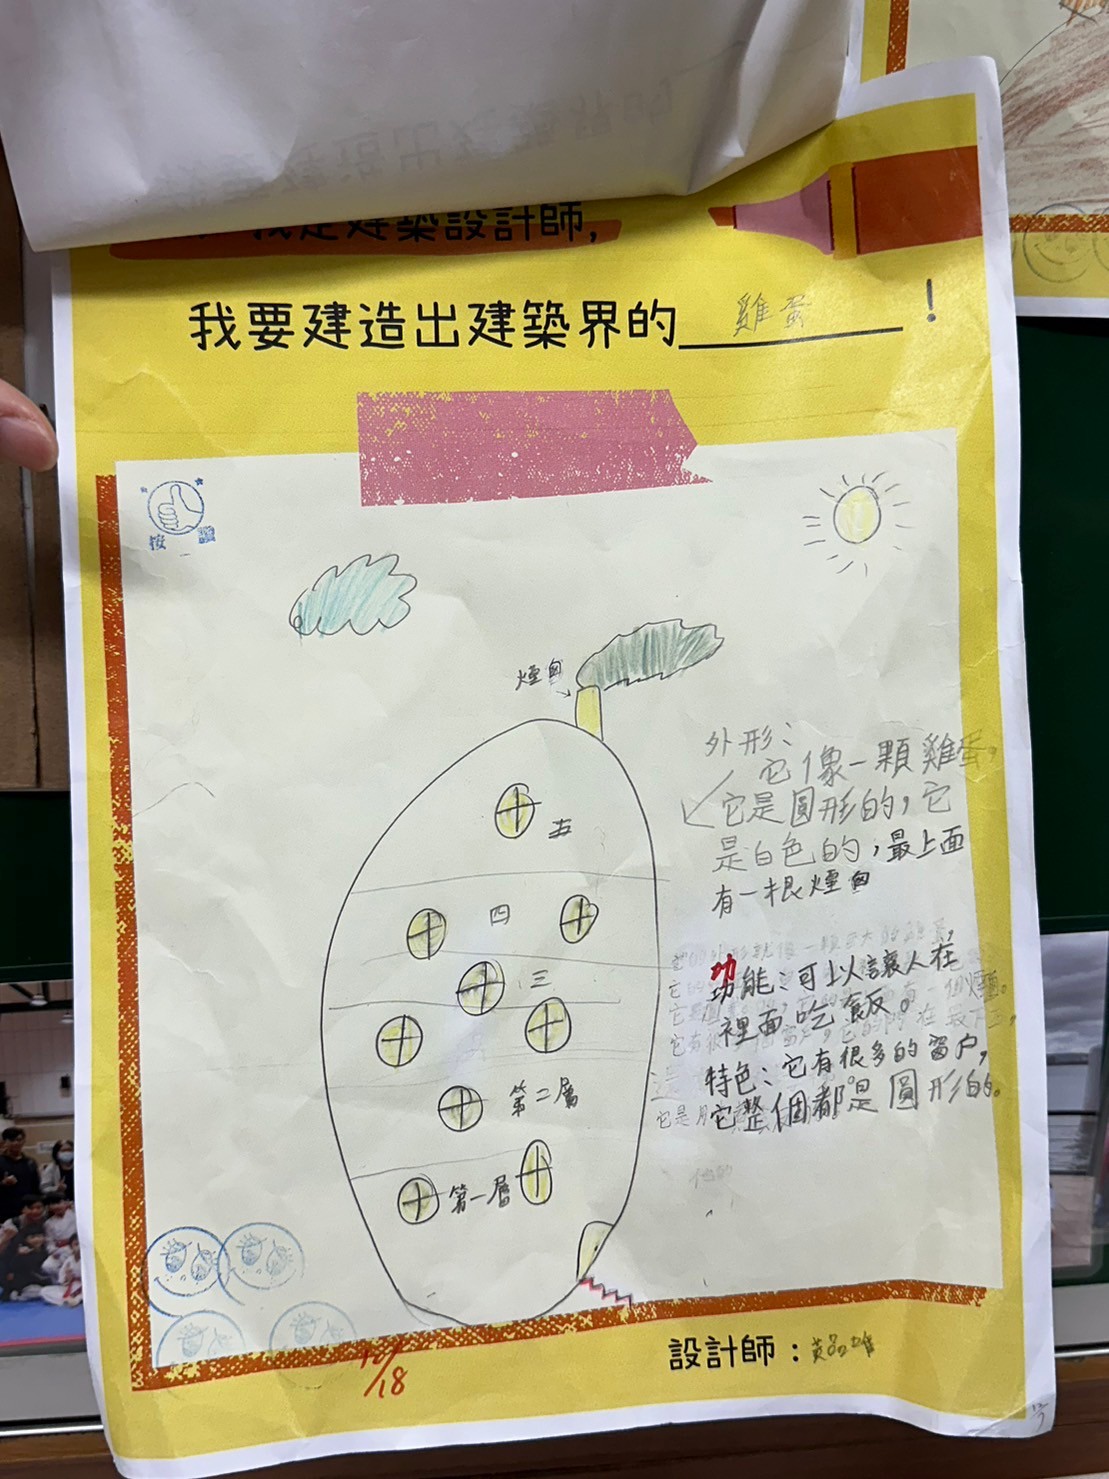 我是建築設計師,
我要建造出建築界的 雞蛋 !
煙囱
外形：
它像一顆雞蛋，
它是圓形的，它
是白色的，最上面
有一根煙囱
五
四
三
第二層
第一層
功
功能：可以讓人在
裡面吃飯。
特色：它有很多的窗户，
它整個都是圓形的。
他的
設計師：
10/18